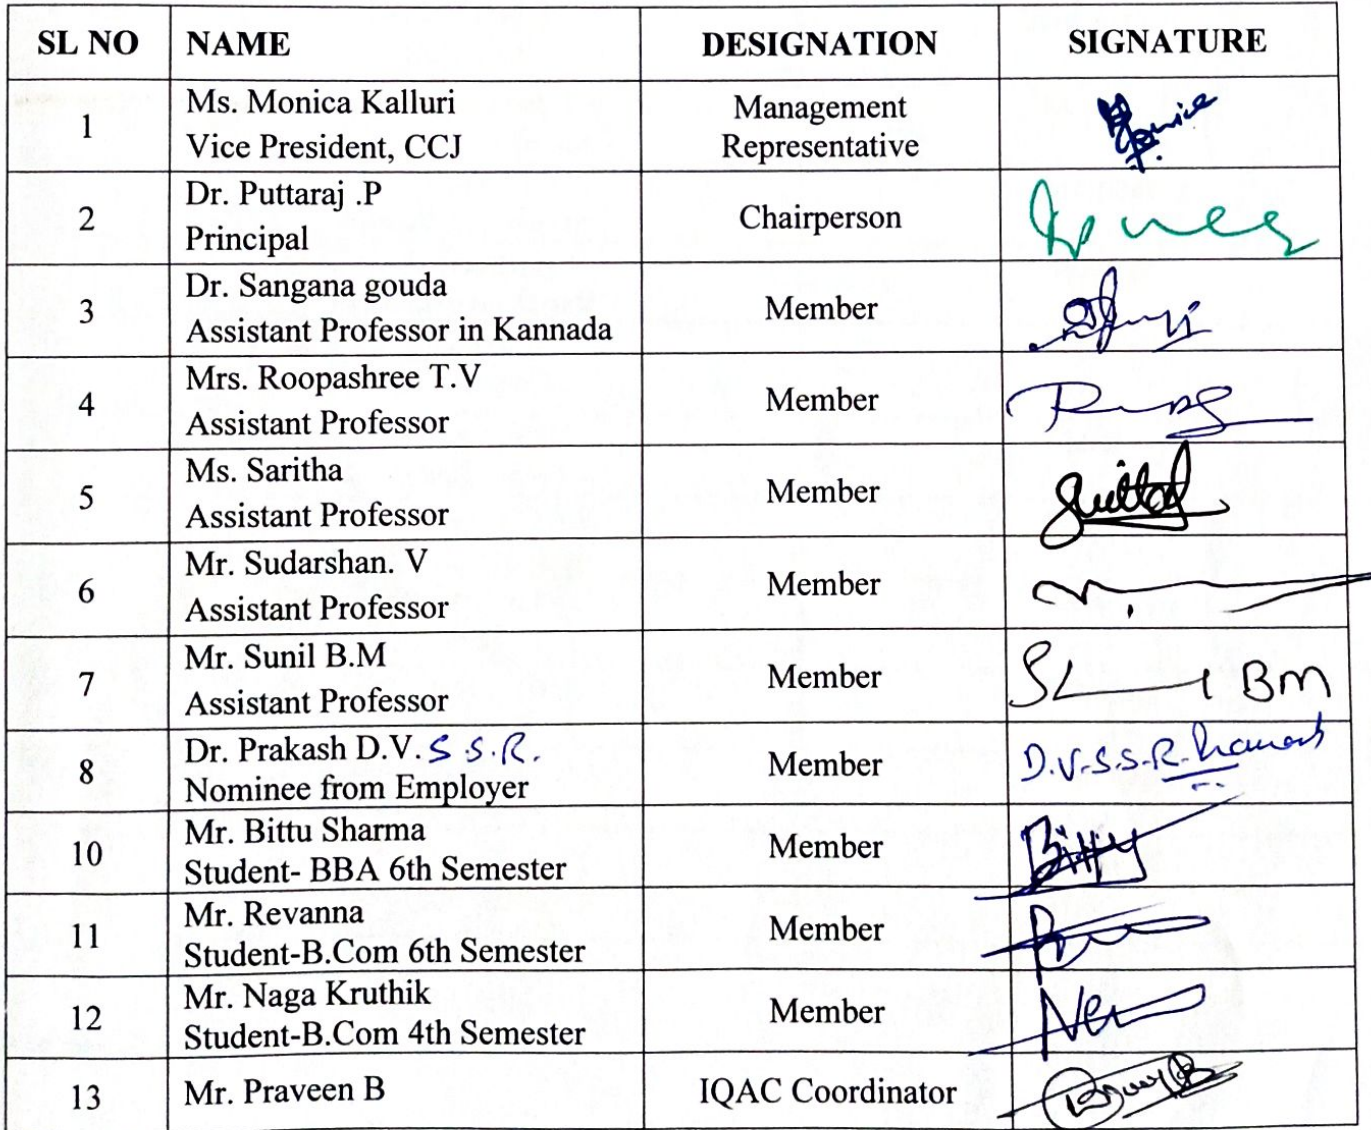 SL NO NAME DESIGNATION SIGNATURE
1 Ms. Monica Kalluri
Vice President, CCJ Management
Representative
2 Dr. Puttaraj .P
Principal Chairperson
3 Dr. Sangana gouda
Assistant Professor in Kannada Member
4 Mrs. Roopashree T.V
Assistant Professor Member
5 Ms. Saritha
Assistant Professor Member
6 Mr. Sudarshan. V
Assistant Professor Member
7 Mr. Sunil B.M
Assistant Professor Member BM
8 Dr. Prakash D.V. S S.R.
Nominee from Employer Member D.V.S.S.R.
10 Mr. Bittu Sharma
Student- BBA 6th Semester Member Bittu
11 Mr. Revanna
Student-B.Com 6th Semester Member
12 Mr. Naga Kruthik
Student-B.Com 4th Semester Member
13 Mr. Praveen B IQAC Coordinator